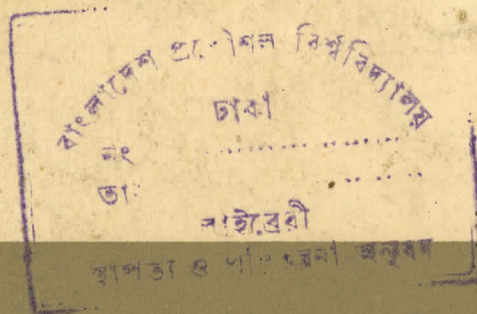 বাংলাদেশ প্রকৌশল বিশ্ববিদ্যালয়
ঢাকা
নং ..................
তা: ..................
লাইব্রেরী
স্থাপত্য ও পরিকল্পনা অনুষদ